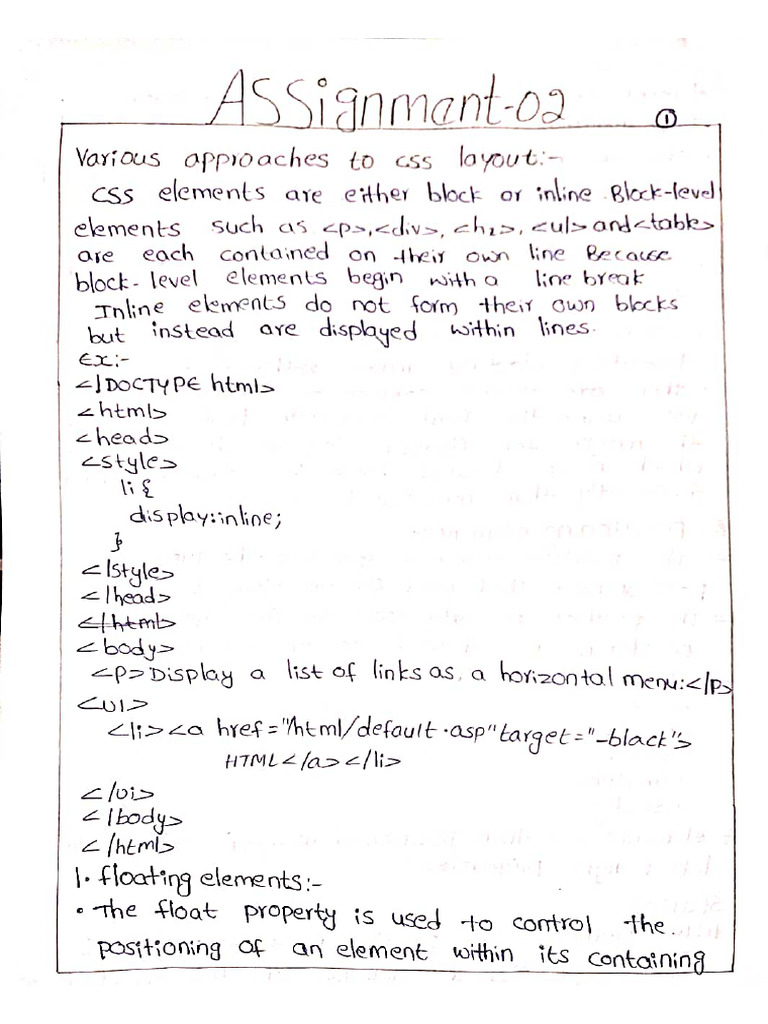 ASSignmant-02
①
Various approaches to css layout:-
CSS elements are either block or inline Block-level
elements such as <p>,<div>, <h1>, <ul> and <table>
are each contained on their own line Because
block-level elements begin with a line break
Inline elements do not form their own blocks
but instead are displayed within lines.
Ex:-
<!DOCTYPE html>
<html>
<head>
<style>
li {
display:inline;
}
</style>
</head>
</html>
<body>
<p>Display a list of links as, a horizontal menu:</p>
<ul>
<li><a href="/html/default.asp" target="-black">
HTML</a></li>
</ui>
</body>
</html>
1. floating elements:-
• The float property is used to control the.
positioning of an element within its containing